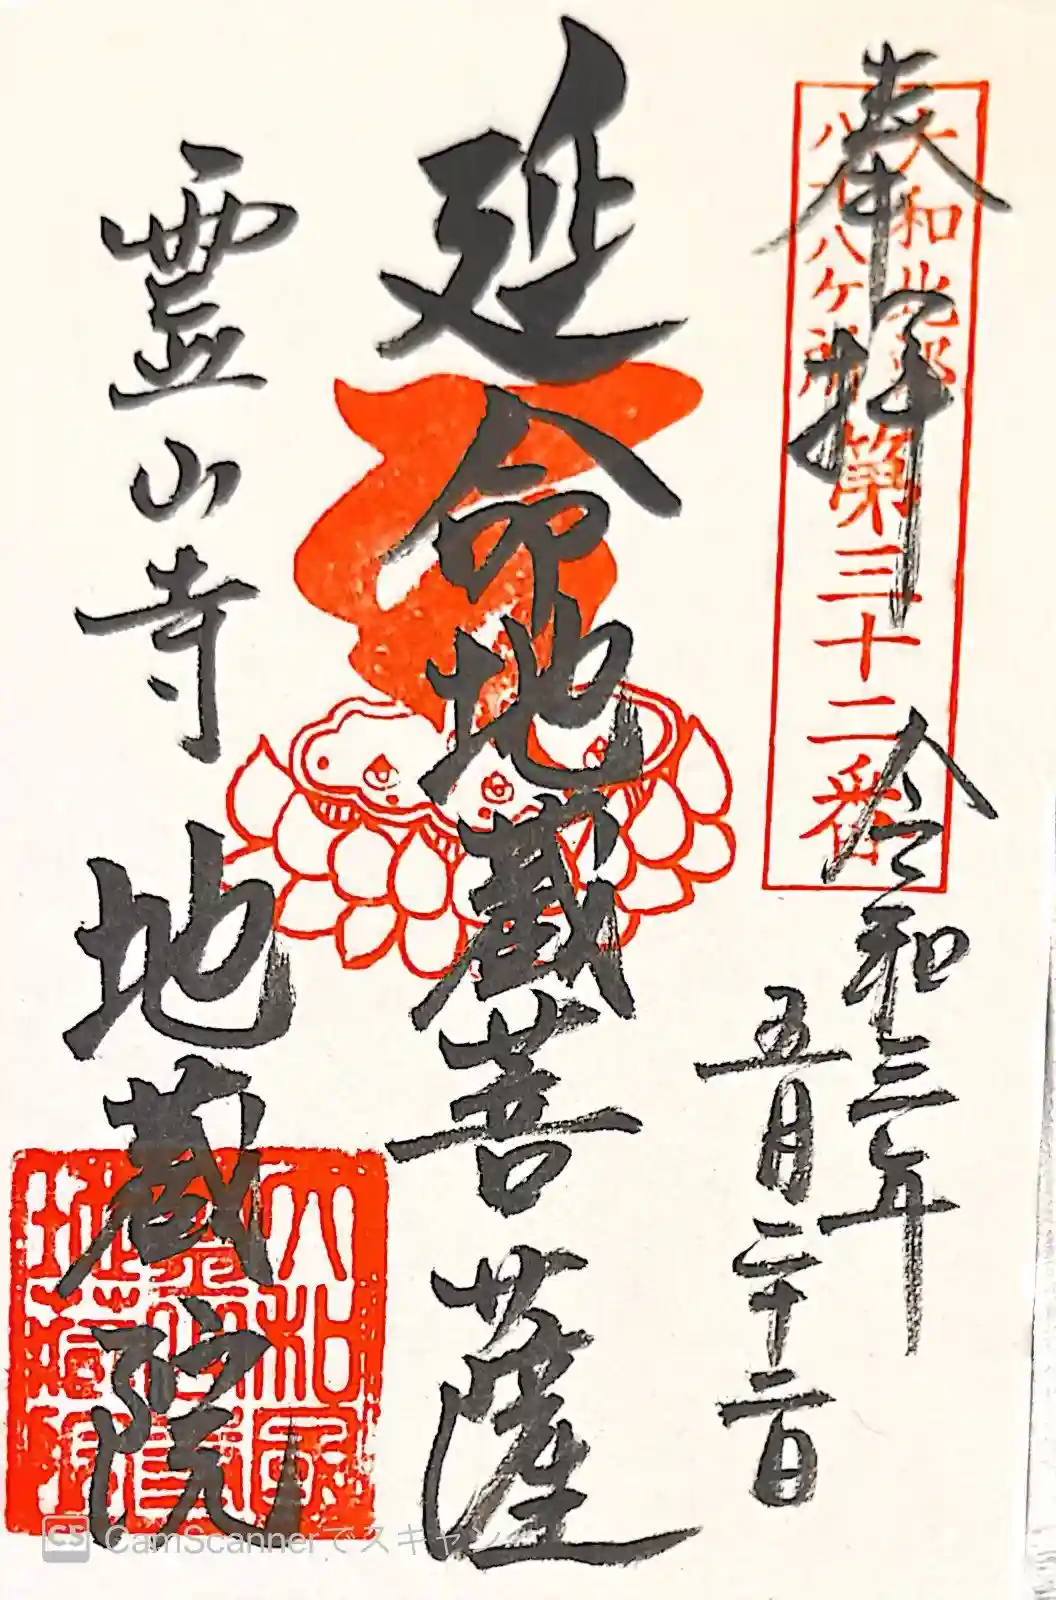 奉拝
大和北部
八十八ヶ所
第三十二番
令和三年
五月二十二日
延命地蔵菩薩
霊山寺
地蔵院
大和国
霊山寺
地蔵院
CS CamScannerでスキャン